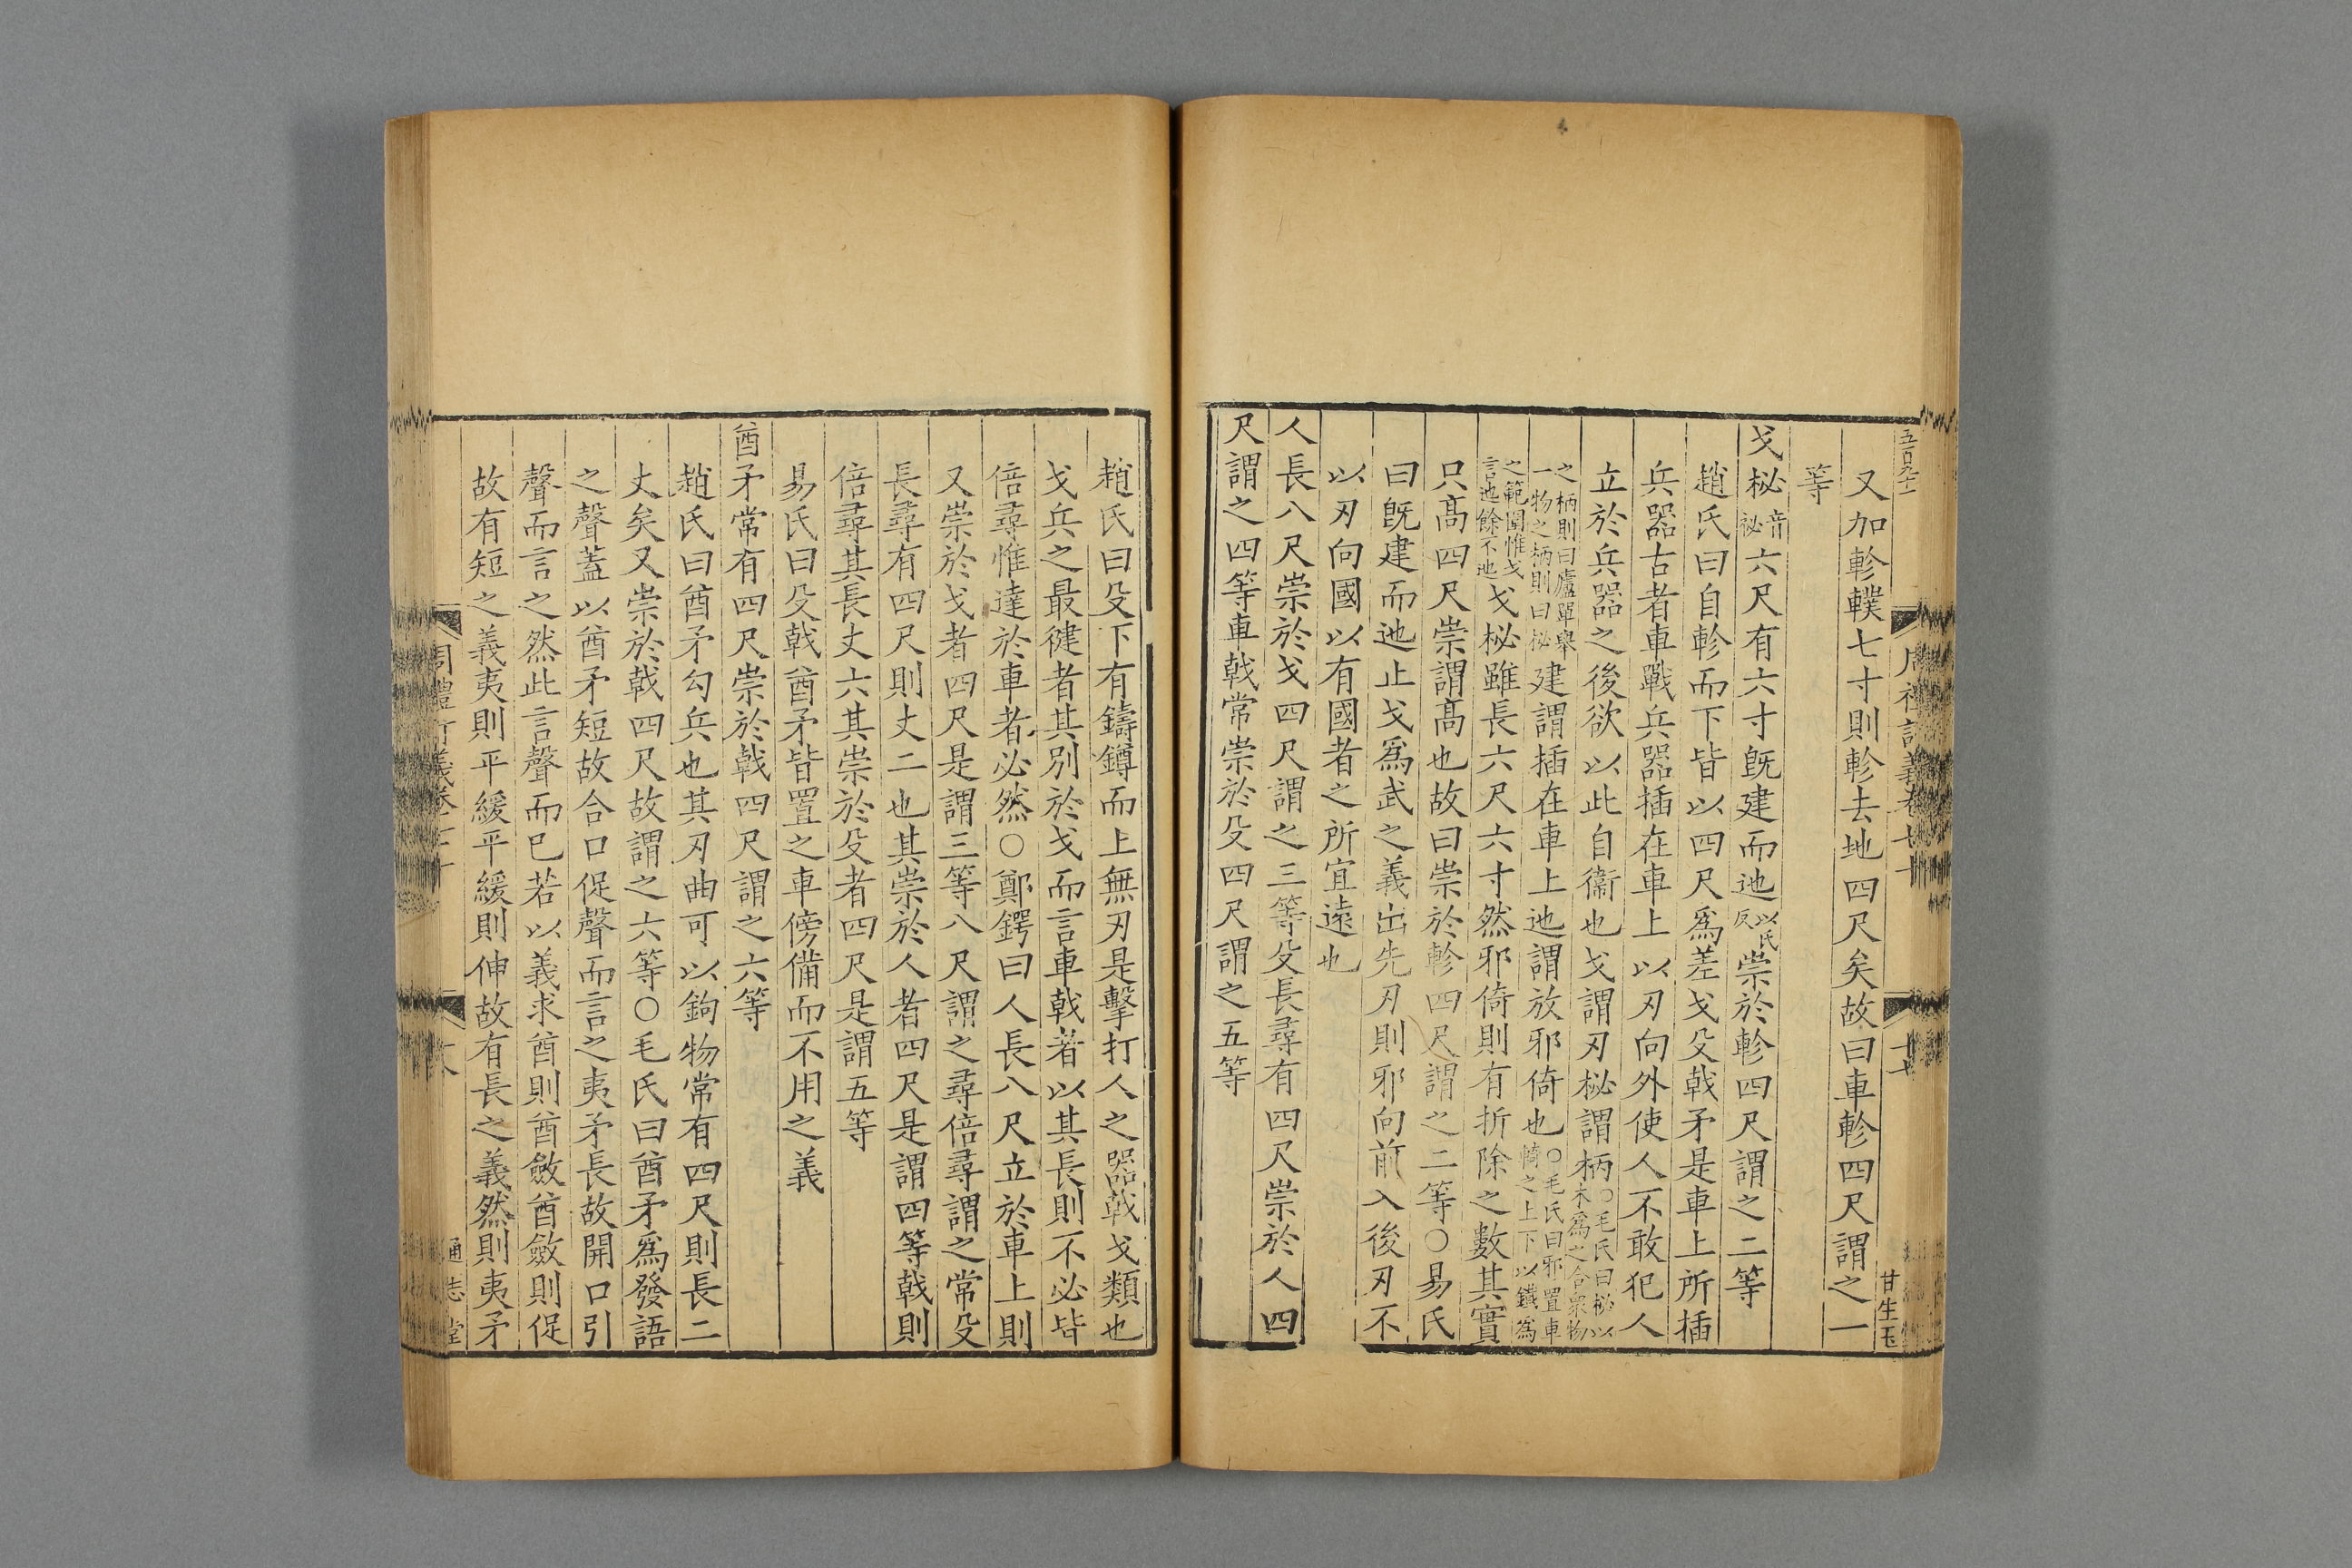 五百九十一
周禮訂義卷七十
十七
甘生玉
又加軫轐七寸則軫去地四尺矣故曰車軫四尺謂之一
等
戈柲音祕六尺有六寸旣建而迆以氏反崇於軫四尺謂之二等
趙氏曰自軫而下皆以四尺爲差戈殳戟矛是車上所插
兵器古者車戰兵器插在車上以刃向外使人不敢犯人
立於兵器之後欲以此自衞也戈謂刃柲謂柄○毛氏曰柲以木爲之合衆物
之柄則曰廬單舉一物之柄則曰柲建謂插在車上迆謂放邪倚也○毛氏曰邪置車輢之上下以鐵爲
之範圍惟戈言迆餘不迆戈柲雖長六尺六寸然邪倚則有折除之數其實
只髙四尺崇謂髙也故曰崇於軫四尺謂之二等○易氏
曰旣建而迆止戈爲武之義出先刃則邪向前入後刃不
以刃向國以有國者之所宜遠也
人長八尺崇於戈四尺謂之三等殳長尋有四尺崇於人四
尺謂之四等車戟常崇於殳四尺謂之五等
趙氏曰殳下有鑄鐏而上無刃是擊打人之器戟戈類也
戈兵之最徤者其別於戈而言車戟著以其長則不必皆
倍尋惟達於車者必然○鄭鍔曰人長八尺立於車上則
又崇於戈者四尺是謂三等八尺謂之尋倍尋謂之常殳
長尋有四尺則丈二也其崇於人者四尺是謂四等戟則
倍尋其長丈六其崇於殳者四尺是謂五等
易氏曰殳戟酋矛皆置之車傍備而不用之義
酋矛常有四尺崇於戟四尺謂之六等
趙氏曰酋矛勾兵也其刃曲可以鉤物常有四尺則長二
丈矣又崇於戟四尺故謂之六等○毛氏曰酋矛爲發語
之聲蓋以酋矛短故合口促聲而言之夷矛長故開口引
聲而言之然此言聲而已若以義求酋則酋斂酋斂則促
故有短之義夷則平緩平緩則伸故有長之義然則夷矛
周禮訂義卷七十
通志堂